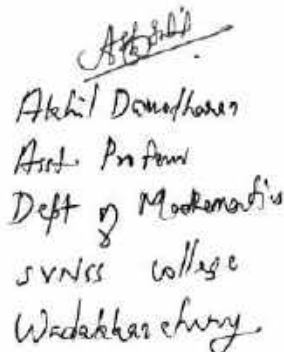 Akhil Damodharan
Asst. Profesor
Dept of Mathematics
SVNSS College
Wadakkancherry